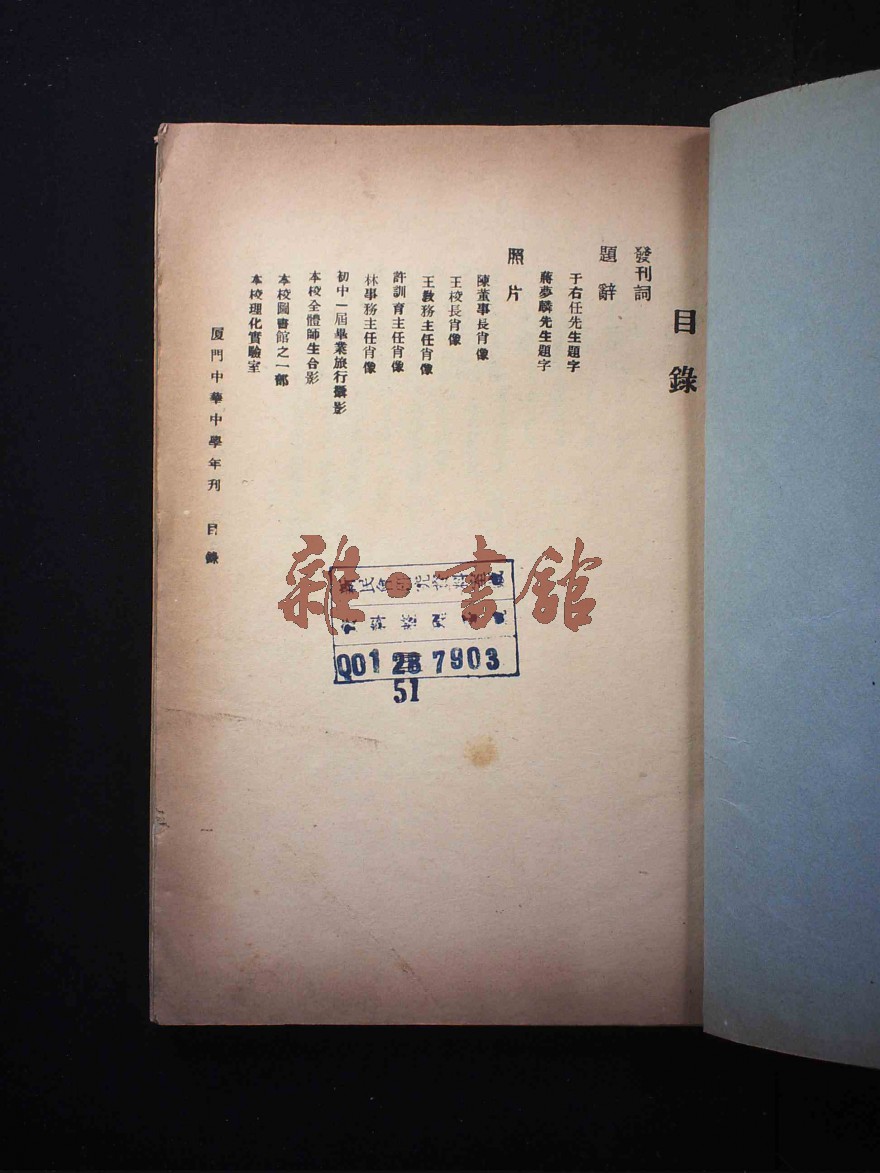 目錄
發刊詞
題辭
于右任先生題字
蔣夢麟先生題字
照片
陳董事長肖像
王校長肖像
王教務主任肖像
許訓育主任肖像
林事務主任肖像
初中一屆畢業旅行攝影
本校全體師生合影
本校圖書館之一部
本校理化實驗室
厦門中華中學年刊 目錄
雜·書館
Q01 28 7903
51